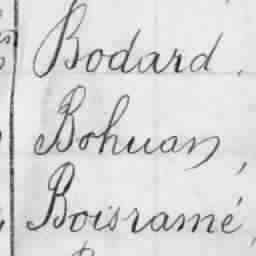 Bodard.
Bohuan,
Boisramé,